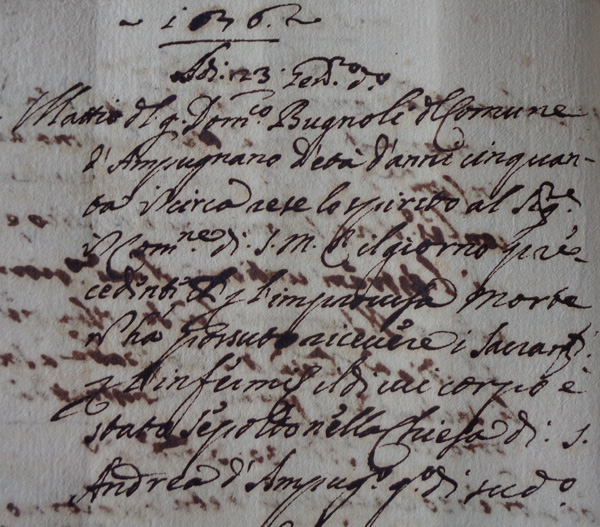 1636.
Adi. 23. Gen.ro d.o
Mattio dl q. Dom.co Bugnoli dl Comune
d'Ampugnano d'età d'anni cinquan-
ta in circa rese lo spirito al Sig.re
Com.ne di S. M. C. il giorno pre-
cedente, et p l'improvisa morte
n ha possuto ricevere i Sacram.ti
p l'infermi il di cui corpo è
stato sepolto nella Chiesa di S.
Andrea d'Ampug.o q.o di sud.o